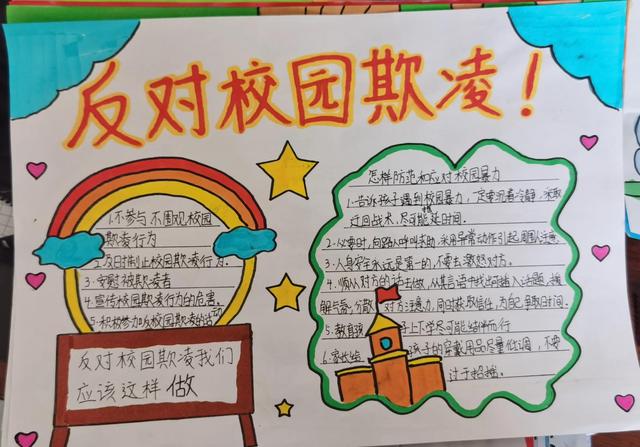 反对校园欺凌！
1.不参与 不围观校园
欺凌行为
2.及时制止校园欺凌行为.
3.安慰被欺凌者
4.宣传校园欺凌行为的危害.
5.积极参加反校园欺凌的活动
反对校园欺凌我们
应该这样 做
怎样防范和应对校园暴力
1.告诉孩子遇到校园暴力,一定要沉着冷静.采取
迂回战术,尽可能拖延时间.
2.必要时,向路人呼叫求助,采用异常动作引起周围人注意.
3.人身安全永远是第一的,不要去激怒对方.
4.顺从对方的话去做,从其言语中找出可插入话题,缓
解气氛,分散对方注意力,同时获取信任,为自己争取时间.
5.教育孩子上下学尽可能结伴而行
6.家长给孩子的穿戴用品尽量低调,不要
过于招摇.